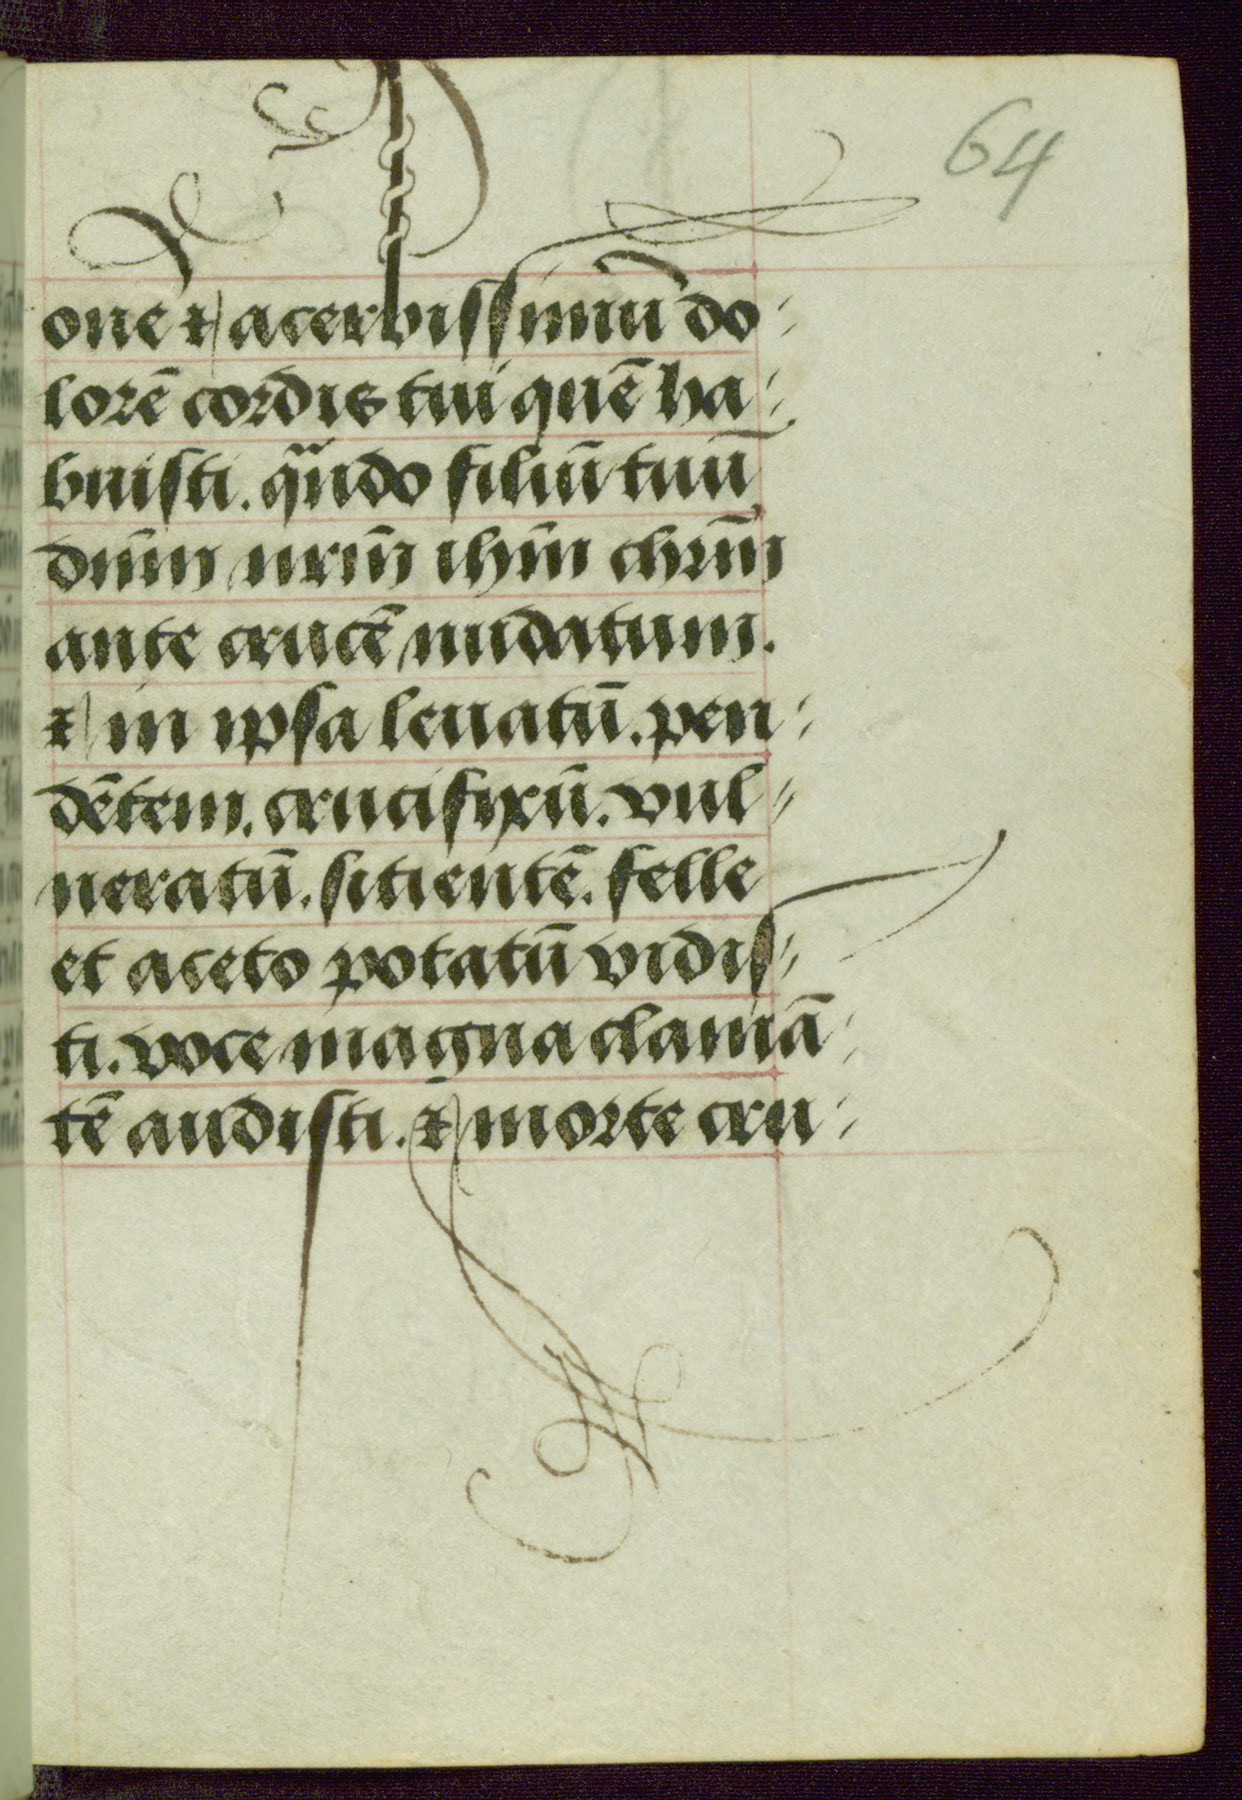 64
one ⁊ acerbissimū do⸗
lorē cordis tui quē ha⸗
buisti. qn̄do filiū tuū
dn̄m nrm̄ ihm̄ chrm̄
ante crucē nudatum.
⁊ in ipsa leuatū. pen⸗
dētem. crucifixū. vul⸗
neratū. sitientē. felle
et aceto potatū vidis⸗
ti. voce magna clamā⸗
tē audisti. ⁊ morte cru⸗